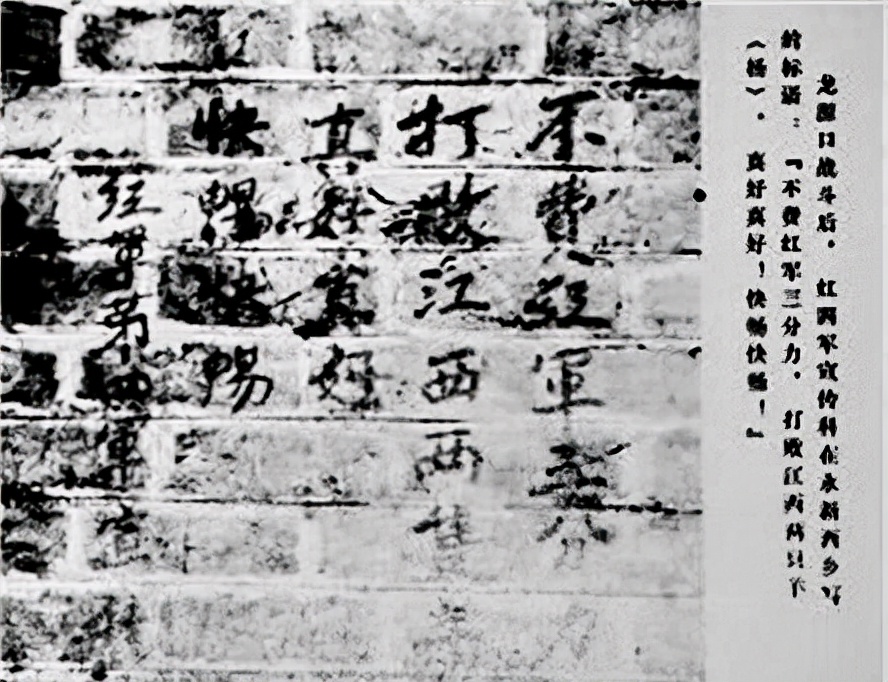 龙源口战斗后，红四军宣传科在永新西乡写
的标语：『不费红军三分力，打败江西两只羊
（杨）。真好真好！快畅快畅！』
不費紅軍三分
打敗江西両隻羊
真好真好
快暢快暢
紅軍第四軍